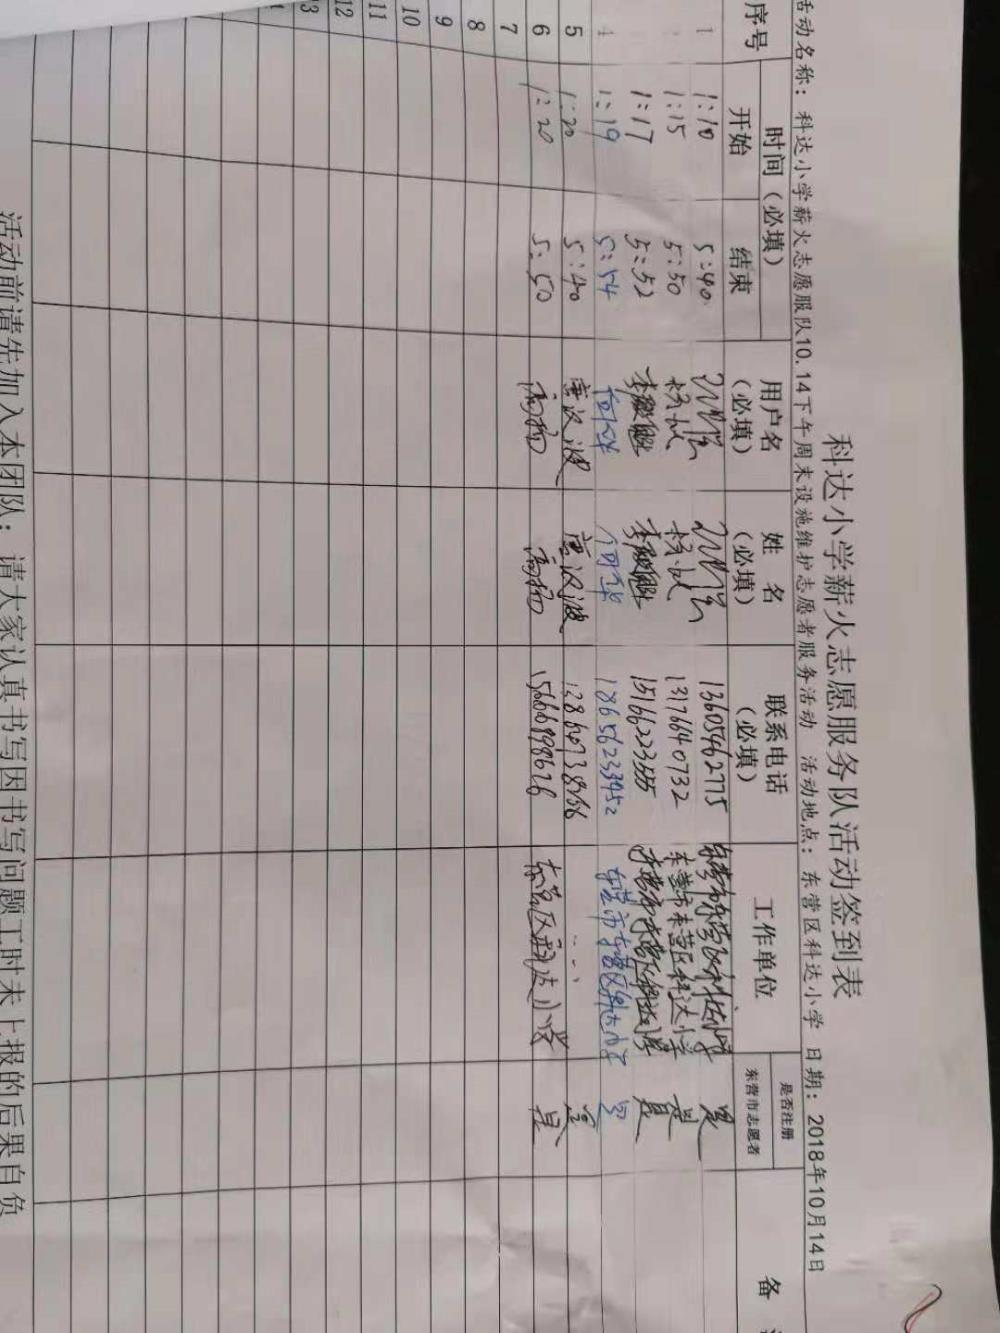 科达小学薪火志愿服务队活动签到表
活动名称：科达小学薪火志愿服队10.14下午周末设施维护志愿者服务活动 活动地点：东营区科达小学 日期：2018年10月14日
序号 时间（必填） 用户名（必填） 姓 名（必填） 联系电话（必填） 工作单位 是否注册东营市志愿者 备
开始 结束
1 1:10 5:40 13605462775 是
1:15 5:50 杨斌 杨斌 13176640732 东营市东营区科达小学 是
1:17 5:52 15166223555 是
4 1:19 5:54 18656233952 东营市东营区科达小学 是
5 1:20 5:40 唐汉波 唐汉波 是
6 1:20 5:50 高杨 高杨 15666898626 东营区科达小学 是
7
8
9
10
11
12
13
活动前请先加入本团队；请大家认真书写因书写问题工时未上报的后果自负